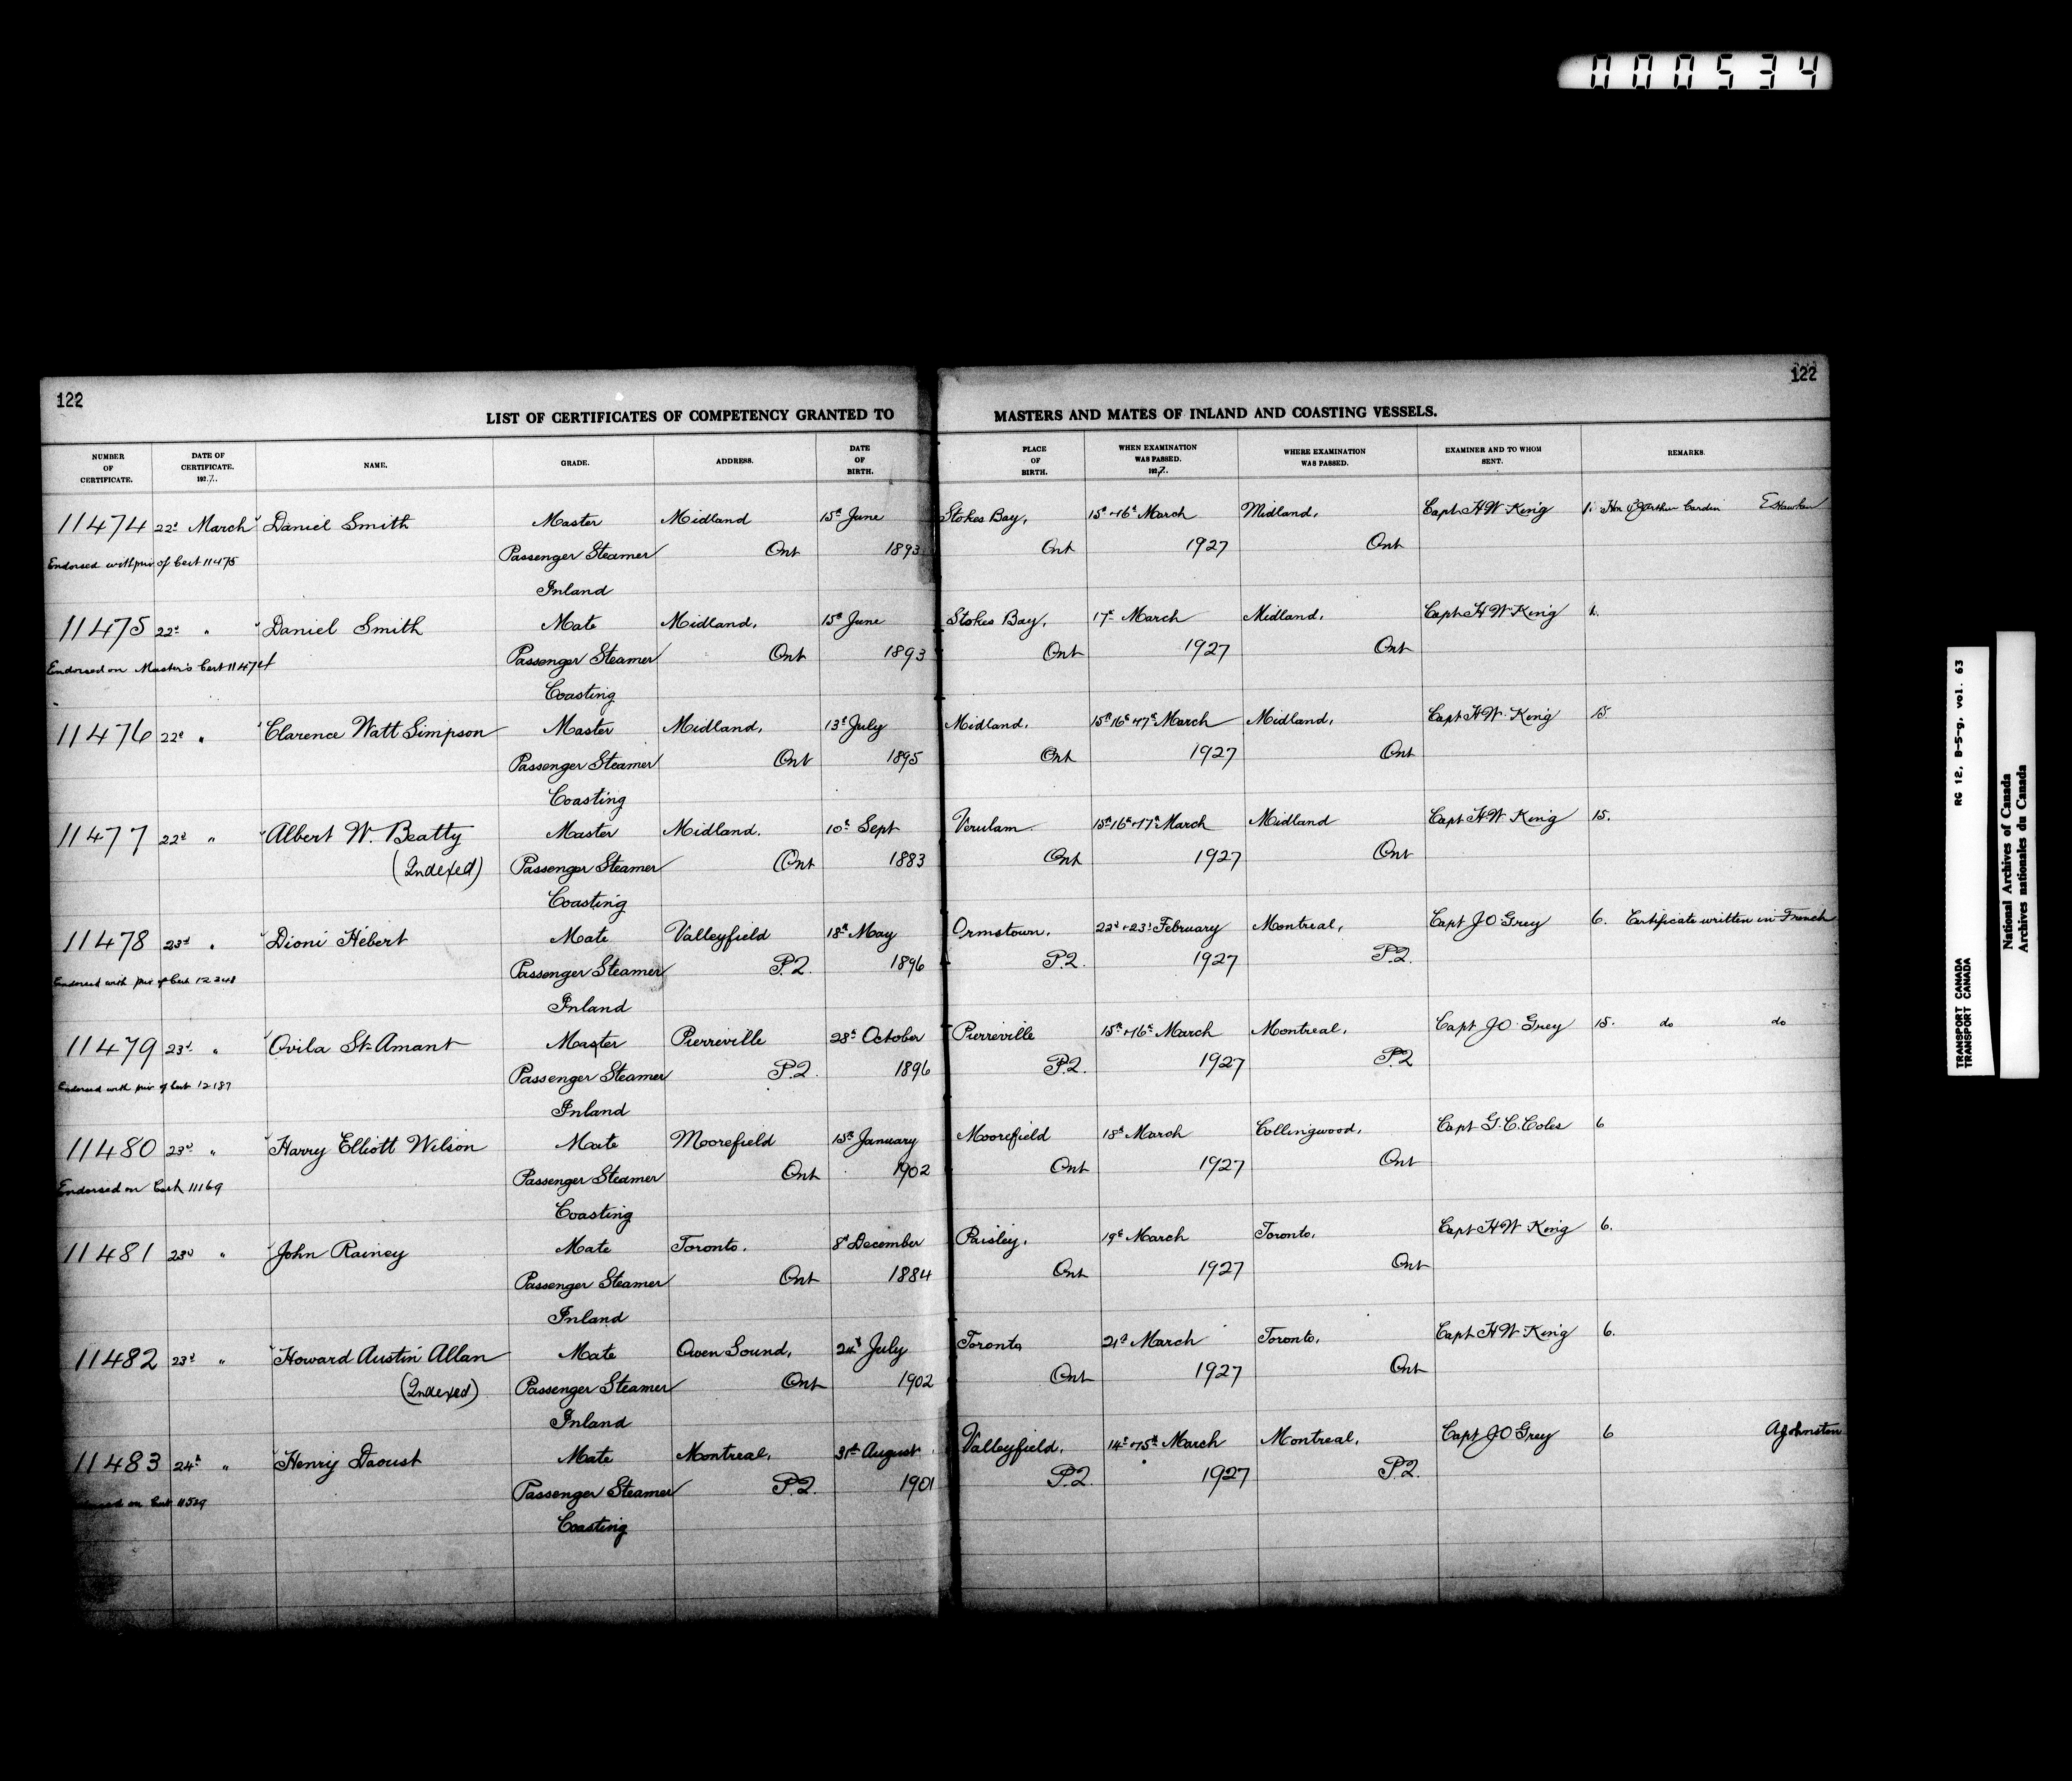 000534
122
122
LIST OF CERTIFICATES OF COMPETENCY GRANTED TO MASTERS AND MATES OF INLAND AND COASTING VESSELS.
NUMBER OF CERTIFICATE. DATE OF CERTIFICATE. 1927. NAME. GRADE. ADDRESS. DATE OF BIRTH. PLACE OF BIRTH. WHEN EXAMINATION WAS PASSED. 1927. WHERE EXAMINATION WAS PASSED. EXAMINER AND TO WHOM SENT. REMARKS.
11474 22d March Daniel Smith Master Midland 15th June Stokes Bay, 15th + 16th March Midland, Capt H W King 1. Hon Arthur Cardin E Hawken
Endorsed with priv of Cert 11475 Passenger Steamer Ont 1893 Ont 1927 Ont
Inland
11475 22d " Daniel Smith Mate Midland, 15th June Stokes Bay, 17th March Midland, Capt H W King 1.
Endorsed on Master's Cert 11474 Passenger Steamer Ont 1893 Ont 1927 Ont
Coasting
11476 22d " Clarence Watt Simpson Master Midland, 13th July Midland, 15th 16th + 17th March Midland, Capt H W King 15.
Passenger Steamer Ont 1895 Ont 1927 Ont
Coasting
11477 22d " Albert W. Beatty Master Midland. 10th Sept Verulam 15th 16th + 17th March Midland Capt H W King 15.
(Indexed) Passenger Steamer Ont 1883 Ont 1927 Ont
Coasting
11478 23d " Dioni Hébert Mate Valleyfield 18th May Ormstown, 22d + 23d February Montreal, Capt J O Grey 6. Certificate written in French
Endorsed with priv of Cert 12248 Passenger Steamer P.Q. 1896 P.Q. 1927 P.Q.
Inland
11479 23d " Ovila St-Amant Master Pierreville 28th October Pierreville 15th + 16th March Montreal, Capt J O Grey 15. do do
Endorsed with priv of Cert 12187 Passenger Steamer P.Q. 1896 P.Q. 1927 P.Q
Inland
11480 23d " Harry Elliott Wilson Mate Moorefield 15th January Moorefield 18th March Collingwood, Capt G. C. Coles 6
Endorsed on Cert 11169 Passenger Steamer Ont 1902 Ont 1927 Ont
Coasting
11481 23d " John Rainey Mate Toronto. 8th December Paisley, 19th March Toronto, Capt H W King 6.
Passenger Steamer Ont 1884 Ont 1927 Ont
Inland
11482 23d " Howard Austin Allan Mate Owen Sound, July Toronto 21st March Toronto, Capt H W King 6.
(Indexed) Passenger Steamer Ont 1902 Ont 1927 Ont
Inland
11483 24th " Henry Daoust Mate Montreal, 31st August Valleyfield, 14th + 15th March Montreal, Capt J O Grey 6 A Johnston
on Cert 11529 Passenger Steamer P.Q. 1901 P.Q. 1927 P.Q.
Coasting
RG 12, B-5-g, vol. 63
TRANSPORT CANADA
TRANSPORT CANADA
National Archives of Canada
Archives nationales du Canada